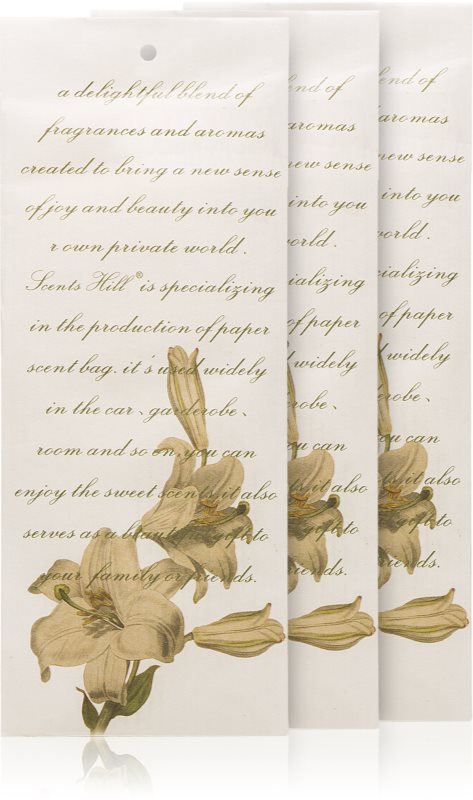 a delightful blend of
fragrances and aromas
created to bring a new sense
of joy and beauty into you
r own private world .
Scents Hill® is specializing
in the production of paper
scent bag. it's used widely
in the car、garderobe、
room and so on, you can
enjoy the sweet scents, it also
serves as a beautiful gift to
your family or friends.
end of
aromas
new sense
into you
orld .
ializing
of paper
widely
robe、
u can
it also
gift to
iends.
end of
aromas
new sense
into you
orld .
ializing
of paper
widely
robe、
can
it also
gift to
iends.